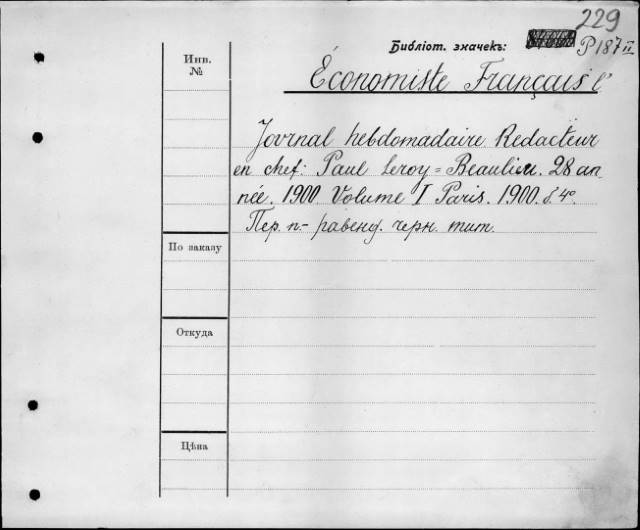 229
Библіот. значекъ:
P 187 II
Инв. №
Économiste Français l'
Journal hebdomadaire Redacteur
en chef: Paul Leroy=Beaulieu. 28 an-
née. 1900 Volume I Paris. 1900. 4°.
Пер. п.- черн. тит.
По заказу
Откуда
Цѣна